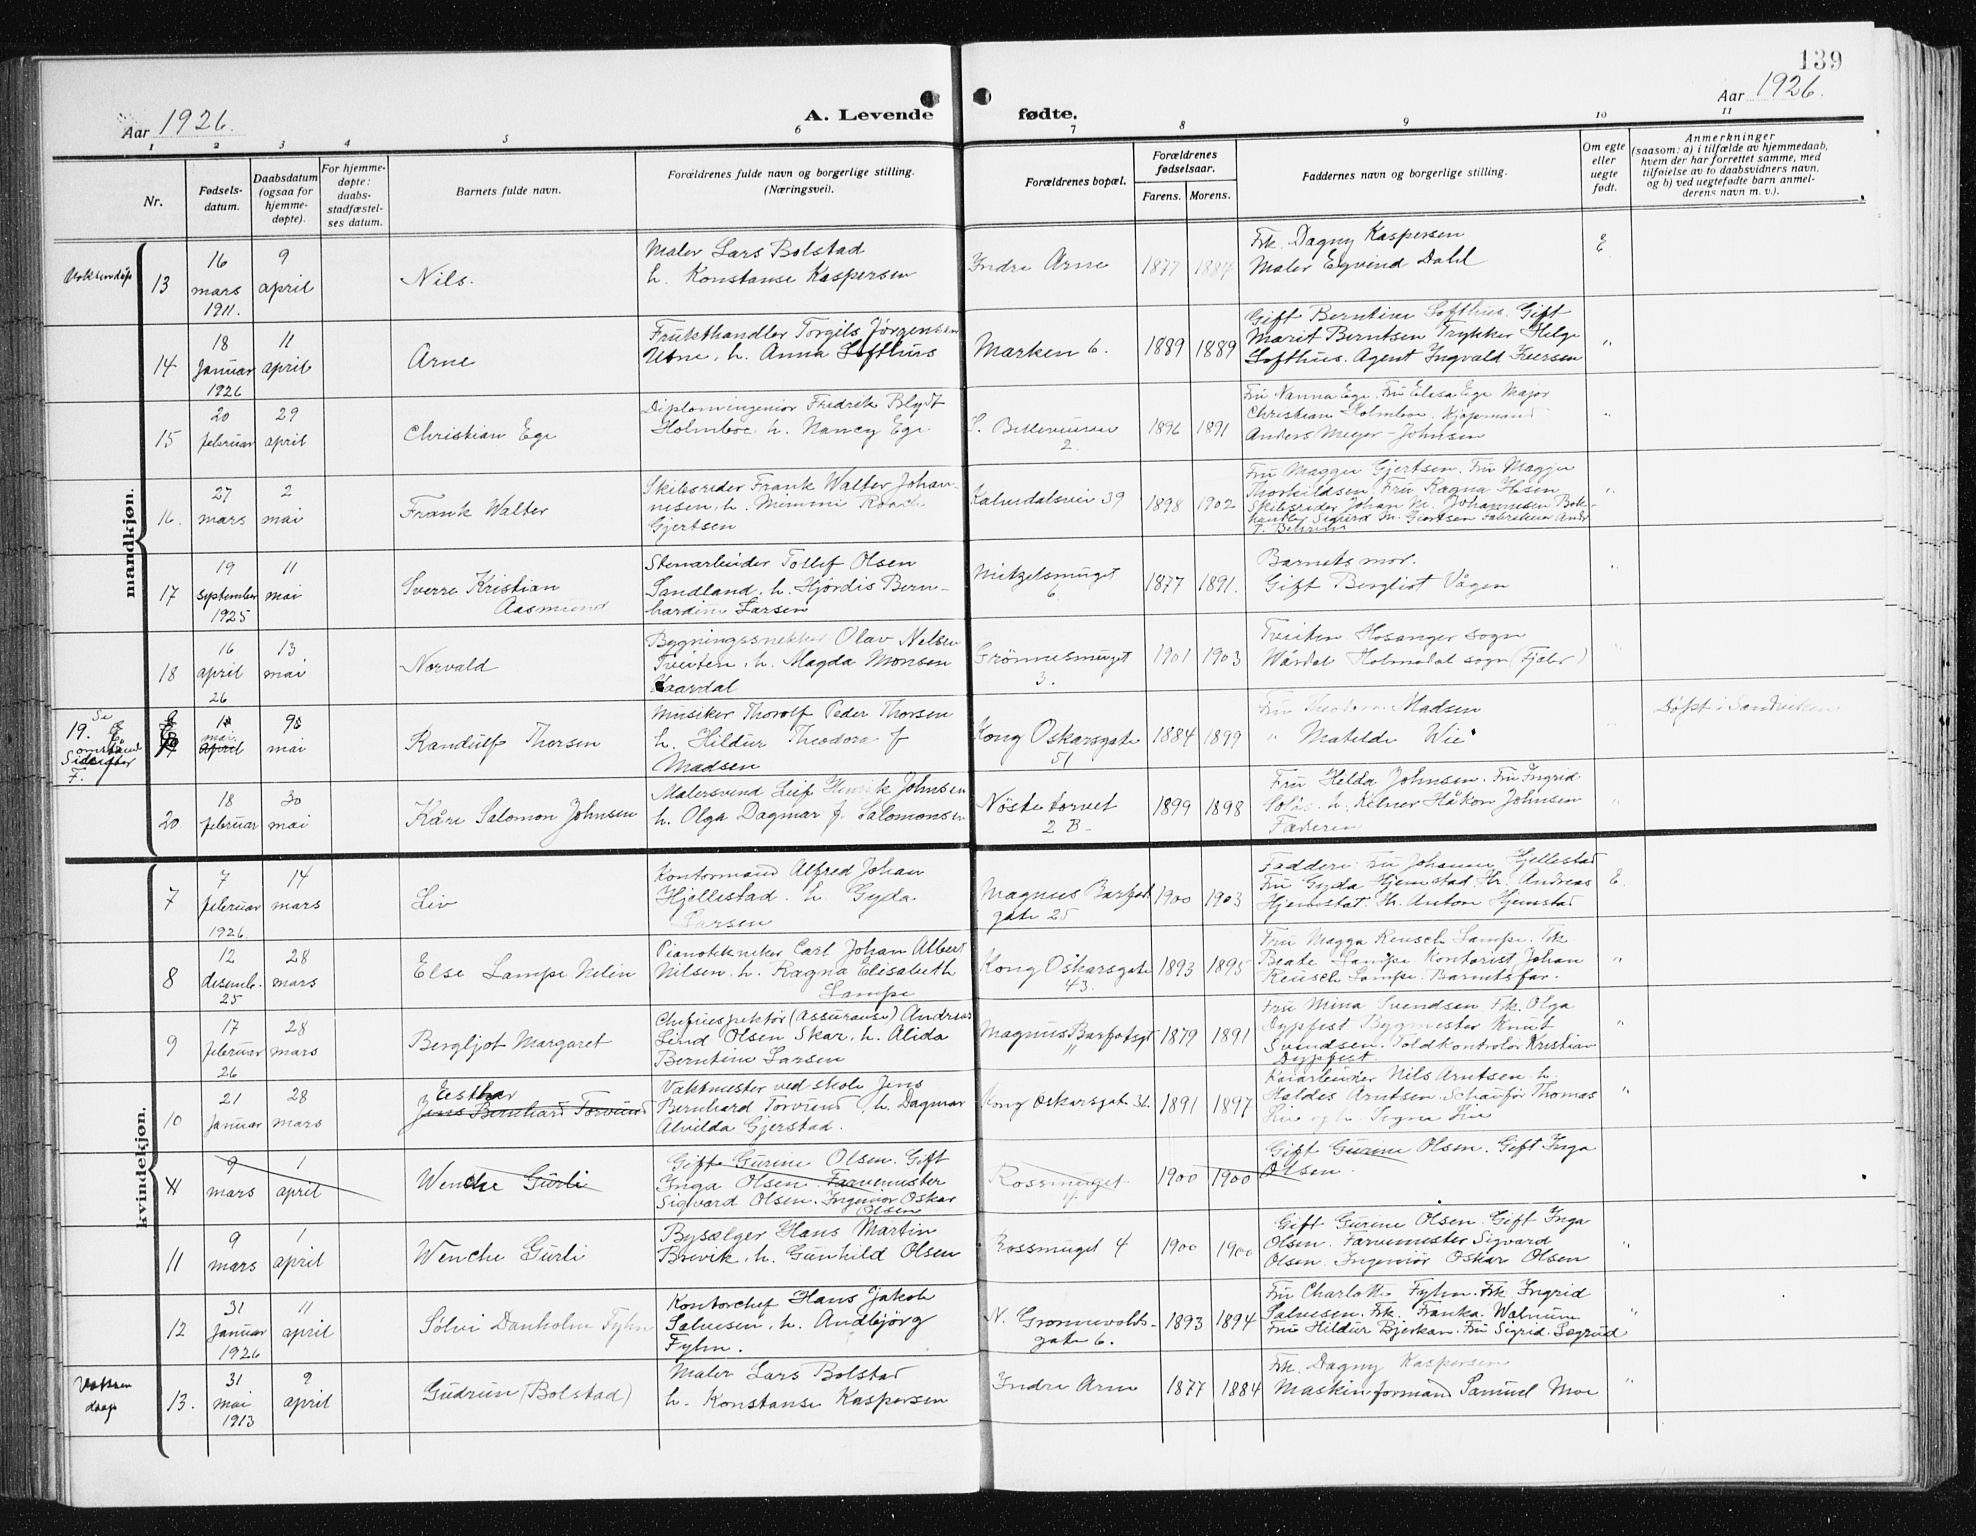 139
Aar 1926.
A. Levende fødte.
Aar 1926.
1 2 3 4 5 6 7 8 9 10 11
Nr.
Fødsels-
datum.
Daabsdatum
(ogsaa for
hjemme-
døpte).
For hjemme-
døpte:
daabs-
stadfæstel-
ses datum.
Barnets fulde navn.
Forældrenes fulde navn og borgerlige stilling.
(Næringsvei).
Forældrenes bopæl.
Forældrenes
fødselsaar.
Farens. Morens.
Faddernes navn og borgerlige stilling.
Om egte
eller
uegte
født.
Anmerkninger
(saasom: a) i tilfælde av hjemmedaab,
hvem der har forrettet samme, med
tilføielse av to daabsvidners navn,
og b) ved uegtefødte barn anmel-
derens navn m. v.).
mandkjøn.
Voksendøp
13
16
mars
1911.
9
april
Nils.
Maler Lars Bolstad
h. Konstanse Kaspersen
Indre Arne
1877 1884
Frk. Dagny Kaspersen
Maler Eyvind Dahl
E
14
18
Januar
1926
11
april
Arne
Frukthandler Torgils Jørgensen
Utne, h. Anna Lofthus
Marken 6.
1889 1889
Gift Berntine Lofthus. Gift
Marit Berntsen Trykker Helge
Lofthus. Agent Ingvald Iversen
"
15
20
februar
29
april
Christian Ege
Diplomingeniør Fredrik Blydt
Holmboe h. Nancy Ege
S. Bellevueven
2.
1896 1891
Fru Nanna Ege. Fru Elisa Ege Major
Christian Holmboe. Kjøpmand
Anders Meyer-Johnsen
"
16.
27
mars
2
mai
Frank Walter
Skibsreder Frank Walter Johan-
nesen, h. Mimmi Roach
Gjertsen
Kalvedalsvei 39
1898 1902
Fru Maggie Gjertsen. Fru Maggie
Thorkildsen, Fru Ragna Ibsen
Skibsreder Johan M. Johannesen Bok-
handler Sigurd M. Gjertsen Fabrikeier Andr
T. Behrens
"
17
19
september
1925
11
mai
Sverre Kristian
Aasmund
Stenarbeider Tollef Olsen
Sandland, h. Hjørdis Bern-
hardine Larsen
Nitzelsmuget
6.
1877 1891.
Barnets mor.
Gift Bergliot Vågen
"
18
16
april
26
13
mai
Norvald
Bygningssnekker Olav Nelsen
Tveiten, h. Magda Monsen
Vaardal
Grønnesmuget
3.
1901 1903
Tveiten Hosanger sogn
Wårdal Holmedal sogn (Fjaler)
19. Se
omstaand
Sideefter
F.
mai
april
mai
Randulf Thorsen
Musiker Thorolf Peder Thorsen
h. Hildur Theodora f
Madsen
Kong Oskarsgate
51
1884 1899
Fru Theodora Madsen
" Matelde Wie
Døpt i Sandviken
20
18
februar
30
mai
Kåre Salomon Johnsen
Malersvend Leif Henrik Johnsen
h. Olga Dagmar f. Salomonsen
Nøstetorvet
2 B.
1899 1898
Fru Helda Johnsen. Fru Ingrid
h. Kelner Håkon Johnsen
Faderen
"
kvindekjøn.
7
7
februar
1926.
14
mars
Liv
Kontormand Alfred Johan
Hjellestad. h. Gyda
Larsen
Magnus Barfot
gate 25
1900 1903
Faddere: Fru Johanne Hjellestad
Fru Gyda Hjemstad. Hr. Andreas
Hjemstat Hr. Anton Hjemstad
E.
8
12
desemb.
25
28
mars
Else Lampe Nilsen
Pianotekniker Carl Johan Albert
Nilsen. h. Ragna Elisabeth
Lampe
Kong Oskarsgate
43.
1893 1895
Fru Magga Reusch Lampe. Frk
Beate Lampe Kontorist Johan
Reusch Lampe. Barnets far.
"
9
17
februar
26
28
mars
Bergljot Margaret
Chefinspektør (Assuranse) Andreas
Lind Olsen Skar, h. Alida
Berntine Larsen
Magnus Barfotsgt
"
1879 1891
Fru Mina Svendsen Frk. Olga
Dypfest Bygmester Knut
Svendsen. Toldkontrolør Kristian
Dypfest.
"
10
21
Januar
28
mars
Esther
Jens Bernhard Torvund
Vaktmester ved skole Jens
Bernhard Torvund, h. Dagmar
Alvilda Gjerstad.
Kong Oskarsgate 36
1891 1897
Kaiarbeider Nils Arntsen h.
Haldis Arntsen. Schaufør Thomas
Lie og h. Signe Lie
"
11
9
mars
1
april
Wenche Gurli
Gift Gurine Olsen. Gift
Inga Olsen. Farvemester
Sigvard Olsen. Ingeniør Oskar
Olsen
Rossmuget
4.
1900 1900
Gift Gurine Olsen. Gift Inga
Olsen.
11
9
mars
1
april
Wenche Gurli
Bysælger Hans Martin
Brevik, h. Gunhild Olsen
Rossmuget 4
1900 1900
Gift Gurine Olsen. Gift Inga
Olsen. Farvemester Sigvard
Olsen. Ingeniør Oskar Olsen
"
12
31
Januar
1926
11
april
Sølvi Danholm Fyhn
Kontorchef Hans Jakob
Salvesen, h. Andbjørg
Fyhn.
N. Grønnevolds-
gate 6.
1893 1894
Fru Charlotte Fyhn. Frk. Ingrid
Salvesen. Frk. Franka Walnum
Fru Hildur Bjerkan. Fru Sigrid Segrud
"
Voksen
daap
13.
31
mai
1913
9
april
Gudrun (Bolstad)
Maler Lars Bolstad
h. Konstanse Kaspersen
Indre Arne
1877 1884
Frk. Dagny Kaspersen
Maskinformand Samuel Moe
"